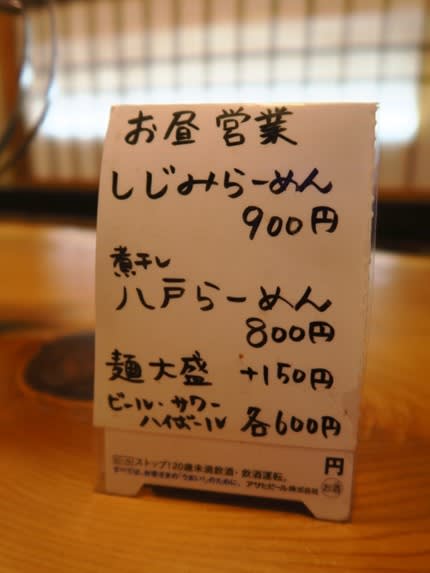 お昼営業
しじみらーめん
900円
煮干し
八戸らーめん
800円
麺大盛 +150円
ビール・サワー
ハイボール 各600円
円
ストップ!20歳未満飲酒・飲酒運転。
すべては、お客さまの「うまい!」のために。 アサヒビール株式会社
お酒